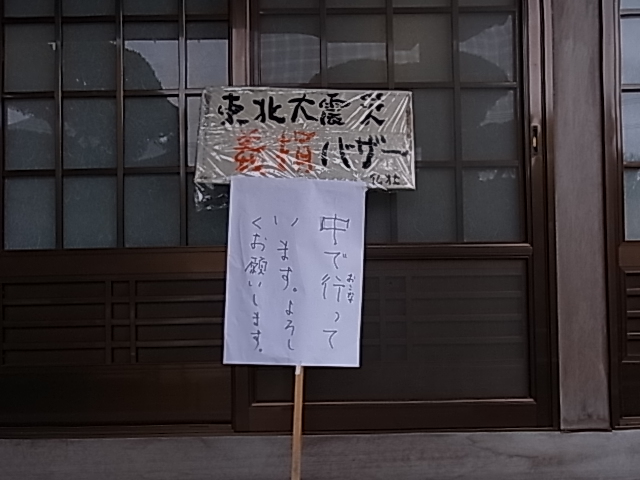 東北大震災
義援バザー
中で行って
おこな
います。よろし
くお願いします。